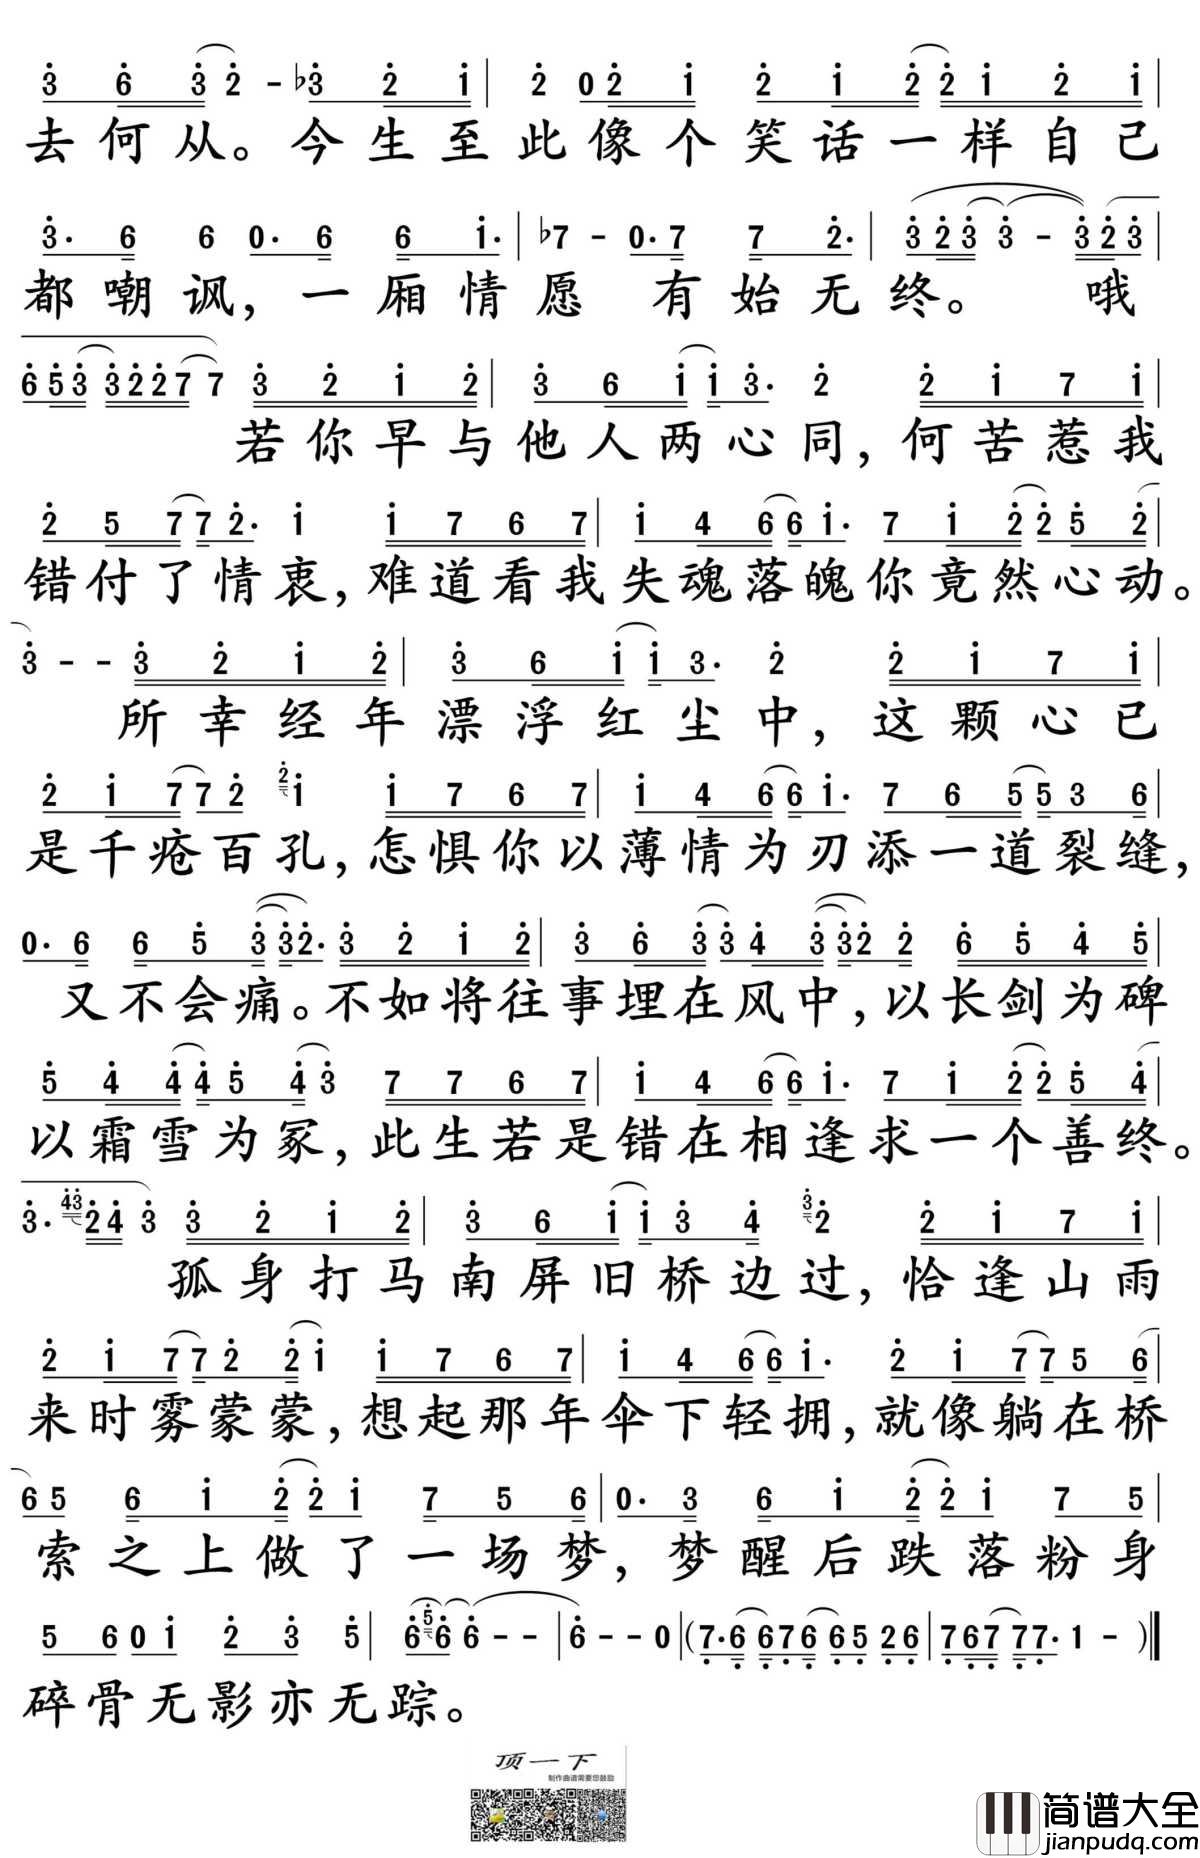 3 6 3 2 - ♭3 2 1 | 2 0 2 1 2 1 2 2 1 2 1 |
去何从。今生至此像个笑话一样自己
3· 6 6 0· 6 6 1· | ♭7 - 0· 7 7 2· | 3 2 3 3 - 3 2 3 |
都嘲讽,一厢情愿 有始无终。 哦
6 5 3 3 2 2 7 7 3 2 1 2 | 3 6 1 1 3· 2 2 1 7 1 |
若你早与他人两心同,何苦惹我
2 5 7 7 2· 1 1 7 6 7 | 1 4 6 6 1· 7 1 2 2 5 2 |
错付了情衷,难道看我失魂落魄你竟然心动。
3 - - 3 2 1 2 | 3 6 1 1 3· 2 2 1 7 1 |
所幸经年漂浮红尘中,这颗心已
2 1 7 7 2 2 1 1 7 6 7 | 1 4 6 6 1· 7 6 5 5 3 6 |
是千疮百孔,怎惧你以薄情为刃添一道裂缝,
0· 6 6 5 3 3 2· 3 2 1 2 | 3 6 3 3 4 3 3 2 2 6 5 4 5 |
又不会痛。不如将往事埋在风中,以长剑为碑
5 4 4 4 5 4 3 7 7 6 7 | 1 4 6 6 1· 7 1 2 2 5 4 |
以霜雪为冢,此生若是错在相逢求一个善终。
3· 4 3 2 4 3 3 2 1 2 | 3 6 1 1 3 4 3 2 2 1 7 1 |
孤身打马南屏旧桥边过,恰逢山雨
2 1 7 7 2 2 1 1 7 6 7 | 1 4 6 6 1· 2 1 7 7 5 6 |
来时雾蒙蒙,想起那年伞下轻拥,就像躺在桥
6 5 6 1 2 2 1 7 5 6 | 0· 3 6 1 2 2 1 7 5 |
索之上做了一场梦,梦醒后跌落粉身
5 6 0 1 2 3 5 | 6 5 6 6 - - | 6 - - 0 | (7· 6 6 7 6 6 5 2 6 | 7 6 7 7 7· 1 - )‖
碎骨无影亦无踪。
顶一下
制作曲谱需要您鼓励
简谱大全
jianpudq.com